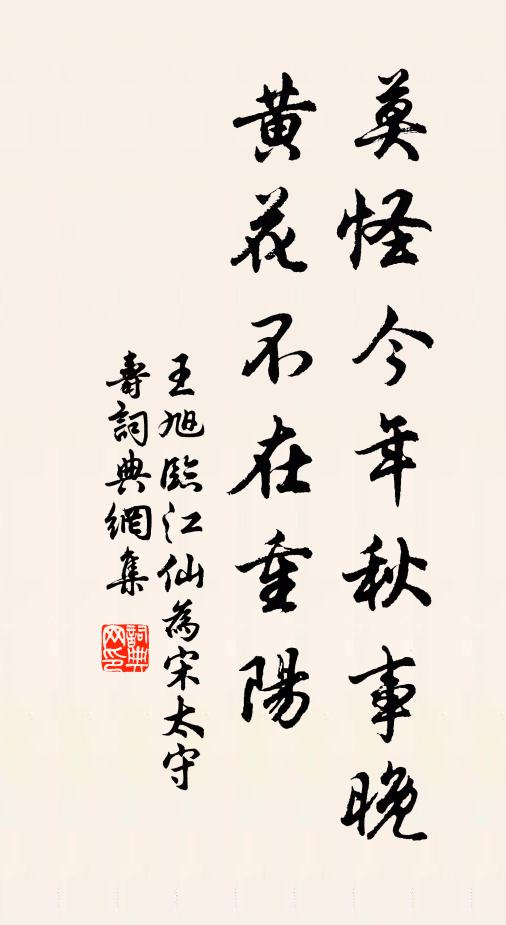 莫怪今年秋事晚
黃花不在重陽
王旭臨江仙為宋太守
壽詞典網集
詞典網印